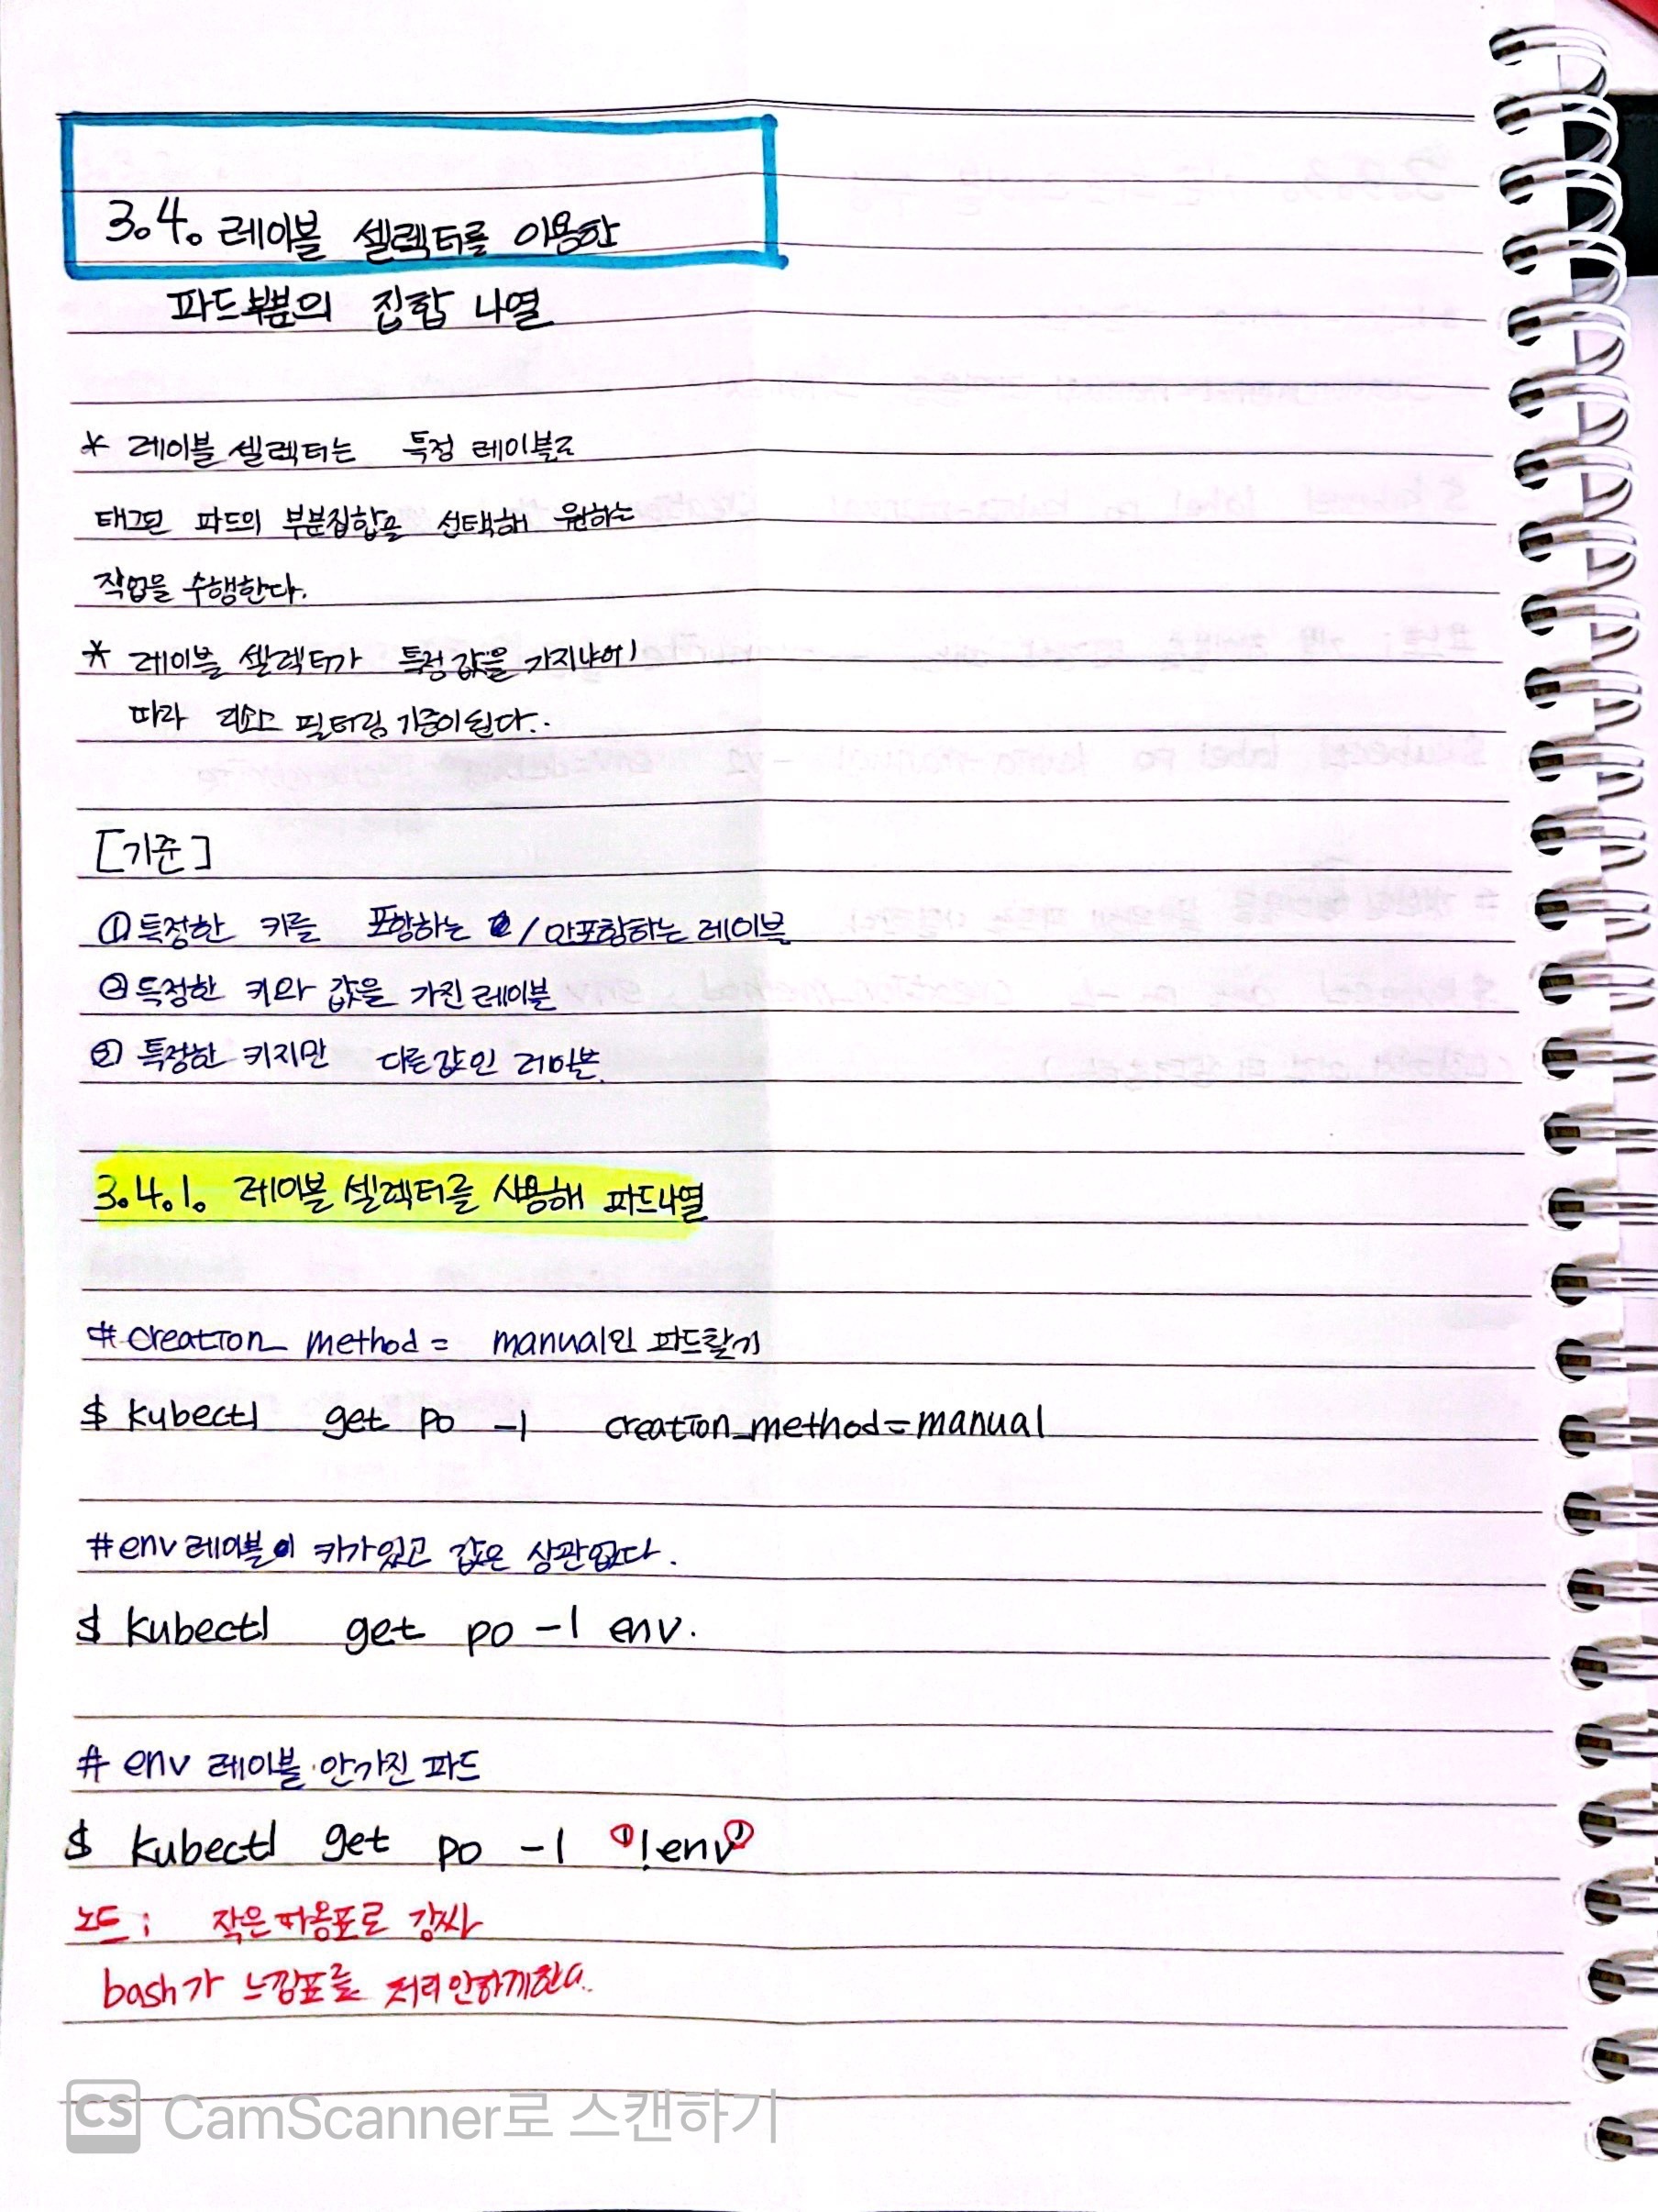 3.4. 레이블 셀렉터를 이용한
파드부분의 집합 나열
* 레이블 셀렉터는 특정 레이블로
태그된 파드의 부분집합을 선택해 원하는
작업을 수행한다.
* 레이블 셀렉터가 특정값을 가지냐에
따라 리소스 필터링 기준이된다.
[기준]
① 특정한 키를 포함하는 / 안포함하는 레이블
② 특정한 키와 값을 가진 레이블
③ 특정한 키지만 다른값인 레이블.
3.4.1. 레이블 셀렉터를 사용해 파드나열
# creation_method = manual인 파드찾기
$ kubectl get po -l creation_method=manual
# env레이블이 키가있고 값은 상관없다.
$ kubectl get po -l env.
# env 레이블 안가진 파드
$ kubectl get po -l '!env'
노트: 작은따옴표로 감싸
bash가 느낌표를 처리안하게한다.
CS CamScanner로 스캔하기